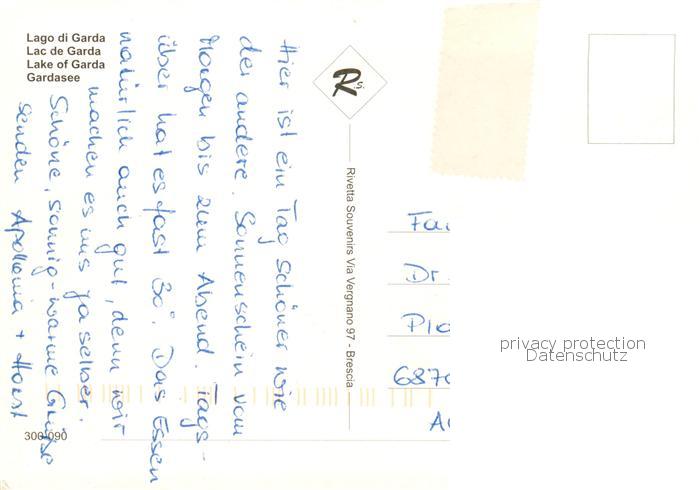 Lago di Garda
Lac de Garda
Lake of Garda
Gardasee
Hier ist ein Tag schöner wie
der andere. Sonnenschein vom
Morgen bis zum Abend. Tags-
über hat es fast 30°. Das Essen
natürlich auch gut, denn wir
machen es uns ja selber.
Schöne, sonnig-warme Grüße
senden Apollonia + Horst
300/090
Rs.
Rivetta Souvenirs Via Vergnano 97 - Brescia
Fa
Dr.
Pla
687
A
privacy protection
Datenschutz